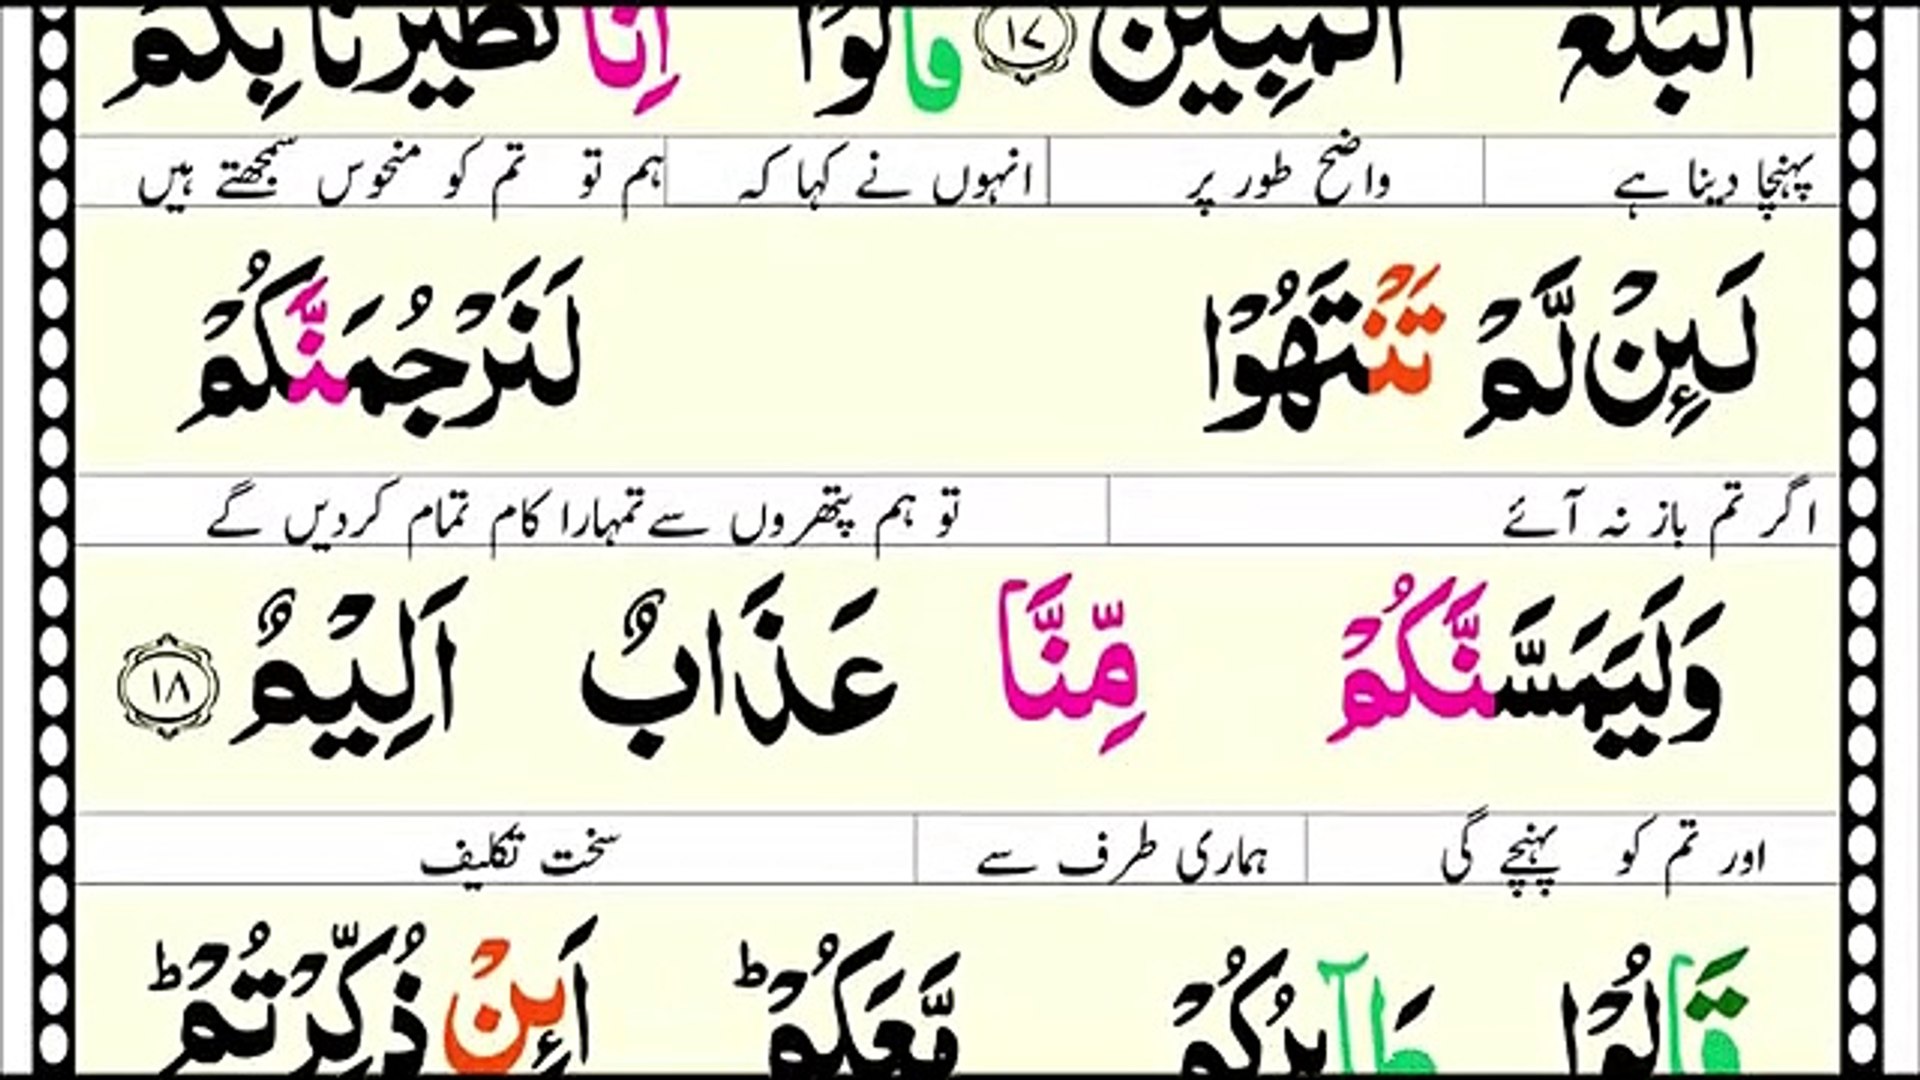 الْبَلٰغُ الْمُبِيْنُ ۝۱۷ قَالُوْۤا اِنَّا تَطَيَّرْنَا بِكُمْ
پہنچا دینا ہے واضح طور پر انہوں نے کہا کہ ہم تو تم کو منحوس سمجھتے ہیں
لَئِنْ لَّمْ تَنْتَهُوْا لَنَرْجُمَنَّكُمْ
اگر تم باز نہ آئے تو ہم پتھروں سے تمہارا کام تمام کردیں گے
وَلَيَمَسَّنَّكُمْ مِّنَّا عَذَابٌ اَلِيْمٌ ۝۱۸
اور تم کو پہنچے گی ہماری طرف سے سخت تکلیف
قَالُوْا طَآئِرُكُمْ مَّعَكُمْ ؕ اَئِنْ ذُكِّرْتُمْ ؕ